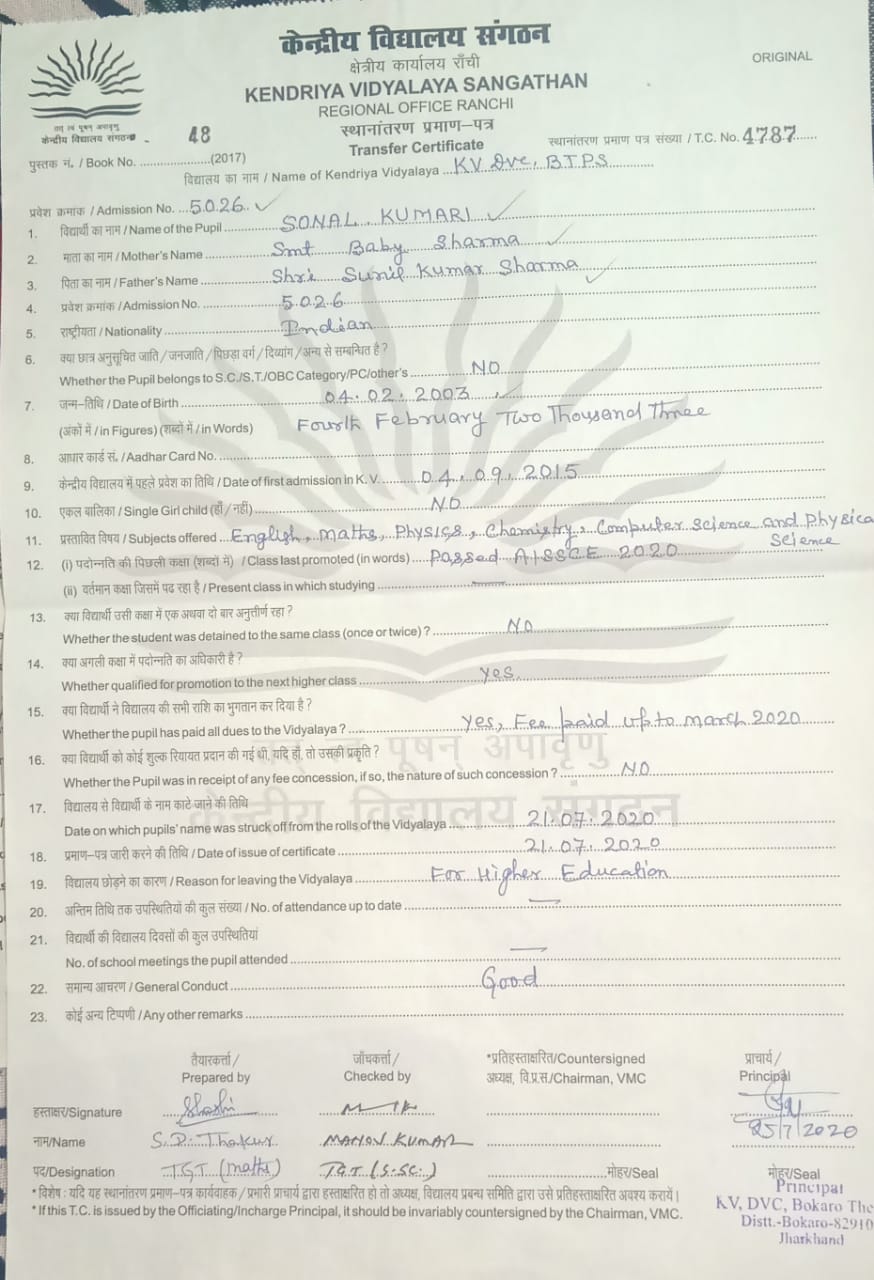 केन्द्रीय विद्यालय संगठन
क्षेत्रीय कार्यालय राँची
ORIGINAL
KENDRIYA VIDYALAYA SANGATHAN
REGIONAL OFFICE RANCHI
तत् त्वं पूषन् अपावृणु
केन्द्रीय विद्यालय संगठन
स्थानांतरण प्रमाण–पत्र
Transfer Certificate
स्थानांतरण प्रमाण पत्र संख्या / T.C. No. 4787
पुस्तक नं. / Book No. 48 (2017)
विद्यालय का नाम / Name of Kendriya Vidyalaya K.V. DVC, B.T.P.S
प्रवेश क्रमांक / Admission No. 5026
1. विद्यार्थी का नाम / Name of the Pupil SONAL KUMARI
2. माता का नाम / Mother's Name Smt Baby Sharma
3. पिता का नाम / Father's Name Shri Sunil Kumar Sharma
4. प्रवेश क्रमांक / Admission No. 5026
5. राष्ट्रीयता / Nationality Indian
6. क्या छात्र अनुसूचित जाति / जनजाति / पिछड़ा वर्ग / दिव्यांग / अन्य से सम्बन्धित है ?
Whether the Pupil belongs to S.C./S.T./OBC Category/PC/other's NO
7. जन्म–तिथि / Date of Birth 04.02.2003
(अंकों में / in Figures) (शब्दों में / in Words) Fourth February Two Thousand Three
8. आधार कार्ड सं. / Aadhar Card No.
9. केन्द्रीय विद्यालय में पहले प्रवेश का तिथि / Date of first admission in K.V. 04.09.2015
10. एकल बालिका / Single Girl child (हाँ / नहीं) NO
11. प्रस्तावित विषय / Subjects offered English, Maths, Physics, Chemistry, Computer Science and Physical Science
12. (i) पदोन्नति की पिछली कक्षा (शब्दों में) / Class last promoted (in words) Passed AISSCE 2020
(ii) वर्तमान कक्षा जिसमें पढ रहा है / Present class in which studying
13. क्या विद्यार्थी उसी कक्षा में एक अथवा दो बार अनुत्तीर्ण रहा ?
Whether the student was detained to the same class (once or twice) ? NO
14. क्या अगली कक्षा में पदोन्नति का अधिकारी है ?
Whether qualified for promotion to the next higher class Yes
15. क्या विद्यार्थी ने विद्यालय की सभी राशि का भुगतान कर दिया है ?
Whether the pupil has paid all dues to the Vidyalaya ? Yes, Fee paid up to March 2020
16. क्या विद्यार्थी को कोई शुल्क रियायत प्रदान की गई थी, यदि हाँ, तो उसकी प्रकृति ?
Whether the Pupil was in receipt of any fee concession, if so, the nature of such concession ? NO
17. विद्यालय से विद्यार्थी के नाम काटे जाने की तिथि
Date on which pupils' name was struck off from the rolls of the Vidyalaya 21.07.2020
18. प्रमाण–पत्र जारी करने की तिथि / Date of issue of certificate 21.07.2020
19. विद्यालय छोड़ने का कारण / Reason for leaving the Vidyalaya For Higher Education
20. अन्तिम तिथि तक उपस्थितियों की कुल संख्या / No. of attendance up to date —
21. विद्यार्थी की विद्यालय दिवसों की कुल उपस्थितियां
No. of school meetings the pupil attended —
22. समान्य आचरण / General Conduct Good
23. कोई अन्य टिप्पणी / Any other remarks
तैयारकर्त्ता / जाँचकर्त्ता / *प्रतिहस्ताक्षरित/Countersigned प्राचार्य /
Prepared by Checked by अध्यक्ष, वि.प्र.स./Chairman, VMC Principal
हस्ताक्षर/Signature Shashi
25/7/2020
नाम/Name S.D. Thakur MANOV KUMAR
पद/Designation TGT (maths) TGT (S.SC.) मोहर/Seal मोहर/Seal
* विशेष : यदि यह स्थानांतरण प्रमाण–पत्र कार्यवाहक / प्रभारी प्राचार्य द्वारा हस्ताक्षरित हो तो अध्यक्ष, विद्यालय प्रबन्ध समिति द्वारा उसे प्रतिहस्ताक्षरित अवश्य करायें।
* If this T.C. is issued by the Officiating/Incharge Principal, it should be invariably countersigned by the Chairman, VMC.
Principal
KV, DVC, Bokaro The
Distt.-Bokaro-82910
Jharkhand